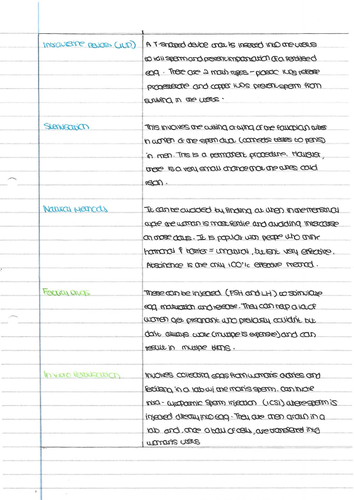 Intrauterine Devices (IUD)
A T-shaped device that is inserted into the uterus
to kill sperm and prevent implantation of a fertilised
egg. There are 2 main types - plastic IUDs release
progesterone and copper IUDs prevent sperm from
surviving in the uterus.
Sterilisation
This involves the cutting or tying of the fallopian tubes
in women or the sperm duct (connects testes to penis)
in men. This is a permanent procedure. However,
there is a very small chance that the tubes could
rejoin.
Natural Methods
It can be avoided by finding out when in the menstrual
cycle the woman is most fertile and avoiding intercourse
on those days. It is popular with people who think
hormonal & barrier = unnatural, but isn't very effective.
Abstinence is the only 100% effective method.
Fertility Drugs
These can be injected (FSH and LH) to stimulate
egg maturation and release. They can help a lot of
women get pregnant who previously couldn't but
don't always work (multiple is expensive) and can
result in multiple births.
In Vitro Fertilisation
Involves collecting eggs from woman's ovaries and
fertilising in a lab w/ the man's sperm. Can include
intra-cytoplasmic sperm injection (ICSI) where sperm is
injected directly into egg. They are then grown in a
lab and, once a ball of cells, are transferred into
woman's uterus